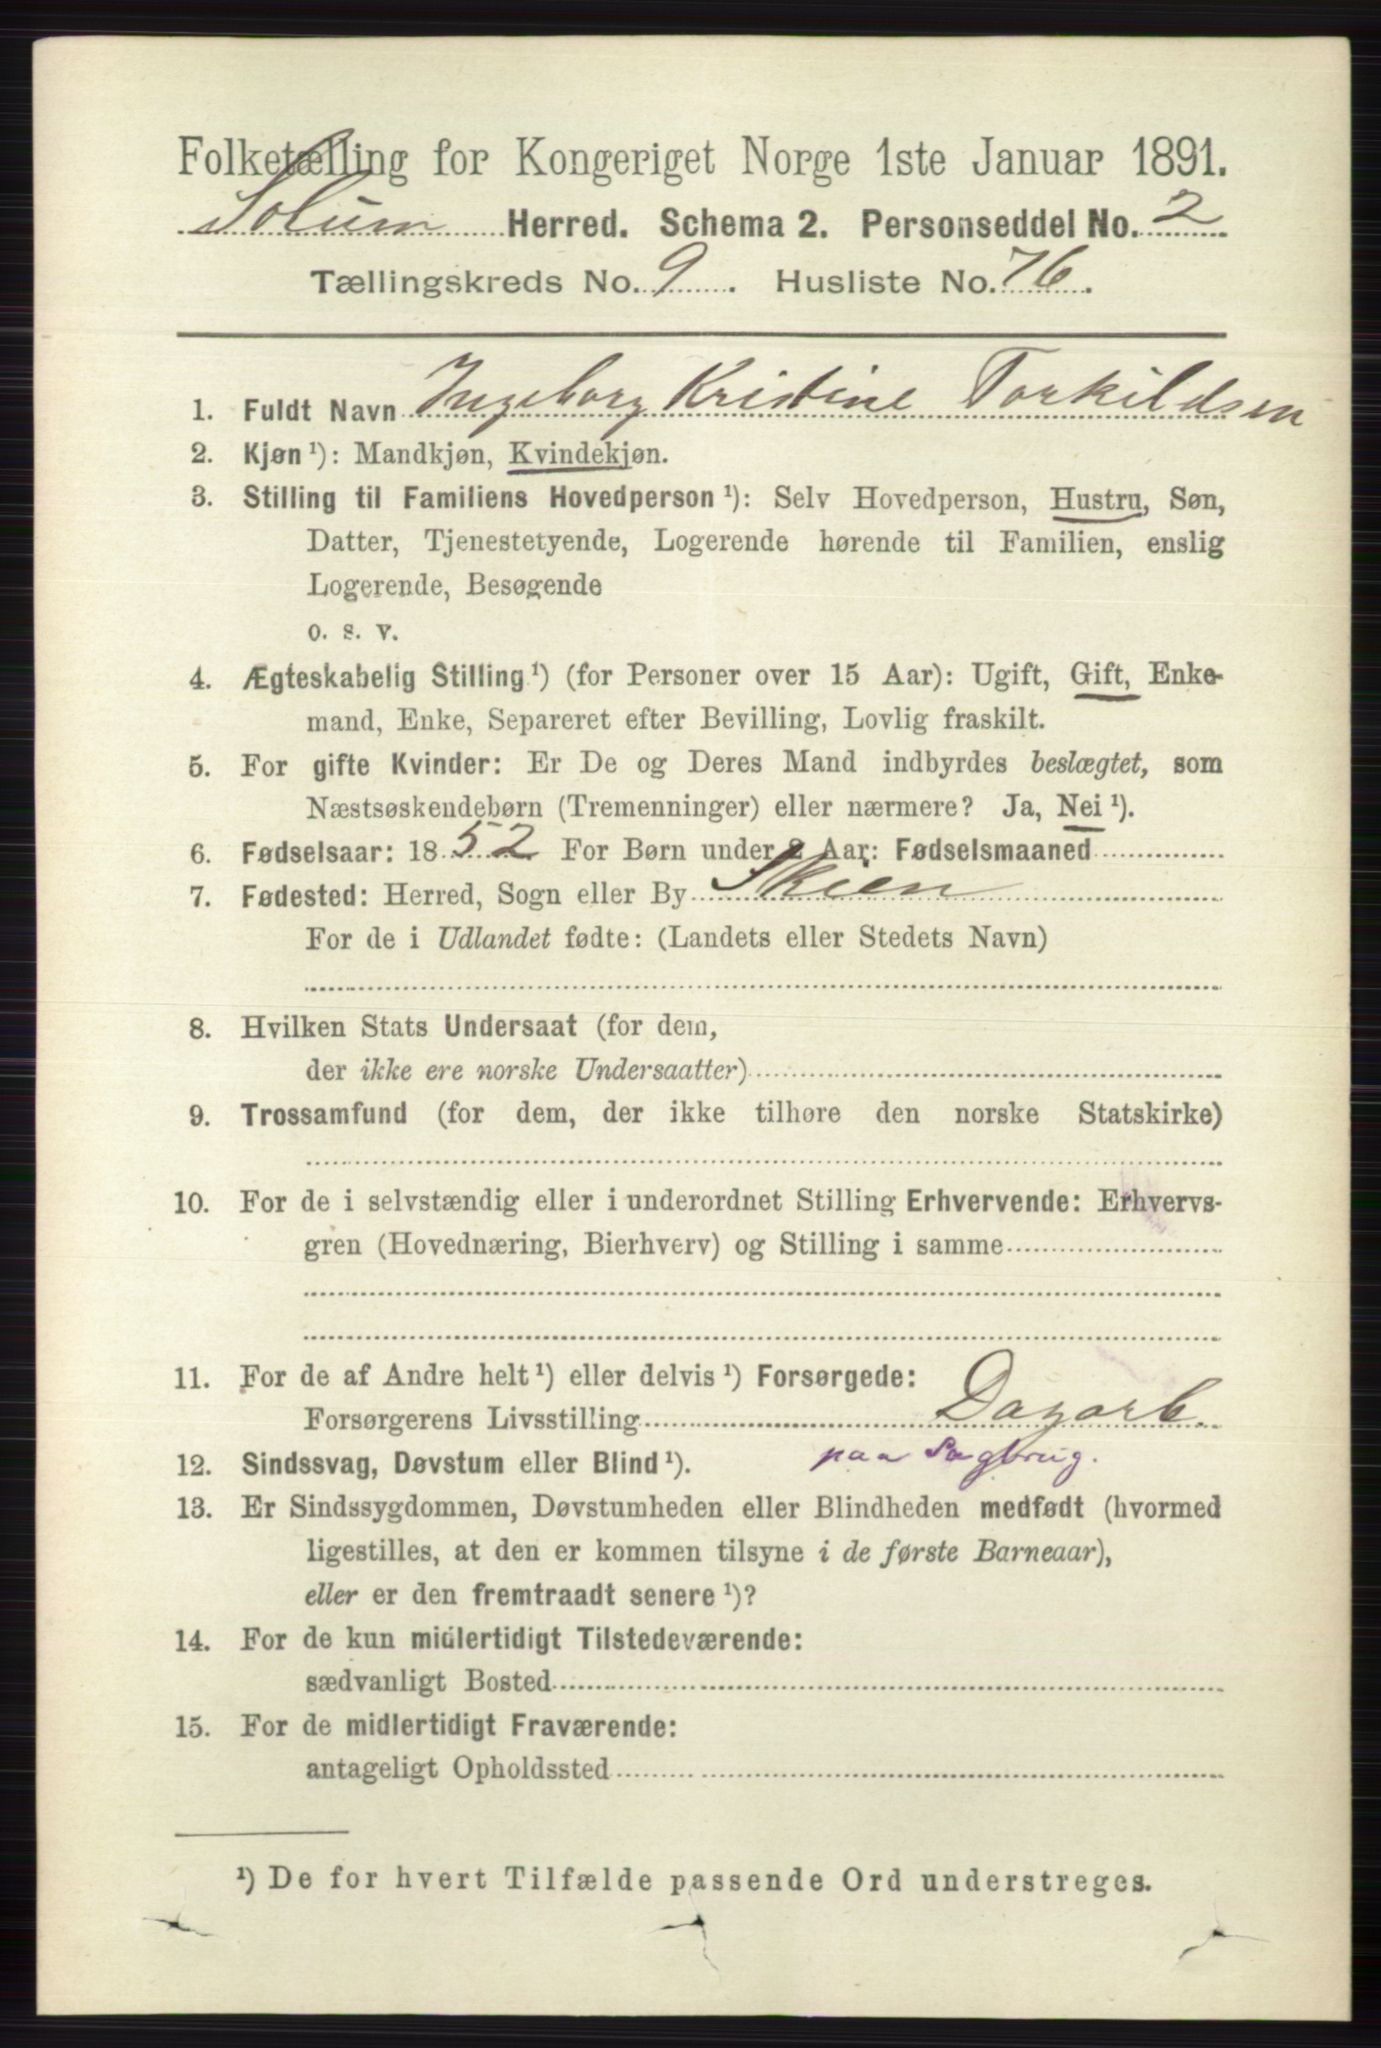 Folketælling for Kongeriget Norge 1ste Januar 1891.
Solum Herred. Schema 2. Personseddel No. 2
Tællingskreds No. 9. Husliste No. 76.
1. Fuldt Navn Ingeborg Kristine Torkildsen
2. Kjøn ¹): Mandkjøn, Kvindekjøn.
3. Stilling til Familiens Hovedperson ¹): Selv Hovedperson, Hustru, Søn,
Datter, Tjenestetyende, Logerende hørende til Familien, enslig
Logerende, Besøgende
o. s. v.
4. Ægteskabelig Stilling ¹) (for Personer over 15 Aar): Ugift, Gift, Enke-
mand, Enke, Separeret efter Bevilling, Lovlig fraskilt.
5. For gifte Kvinder: Er De og Deres Mand indbyrdes beslægtet, som
Næstsøskendebørn (Tremenninger) eller nærmere? Ja, Nei ¹).
6. Fødselsaar: 1852 For Børn under 2 Aar: Fødselsmaaned
7. Fødested: Herred, Sogn eller By Skien
For de i Udlandet fødte: (Landets eller Stedets Navn)
8. Hvilken Stats Undersaat (for dem,
der ikke ere norske Undersaatter)
9. Trossamfund (for dem, der ikke tilhøre den norske Statskirke)
10. For de i selvstændig eller i underordnet Stilling Erhvervende: Erhvervs-
gren (Hovednæring, Bierhverv) og Stilling i samme
11. For de af Andre helt ¹) eller delvis ¹) Forsørgede:
Forsørgerens Livsstilling Dagarb.
paa Sagbrug.
12. Sindssvag, Døvstum eller Blind ¹).
13. Er Sindssygdommen, Døvstumheden eller Blindheden medfødt (hvormed
ligestilles, at den er kommen tilsyne i de første Barneaar),
eller er den fremtraadt senere ¹)?
14. For de kun midlertidigt Tilstedeværende:
sædvanligt Bosted
15. For de midlertidigt Fraværende:
antageligt Opholdssted
¹) De for hvert Tilfælde passende Ord understreges.